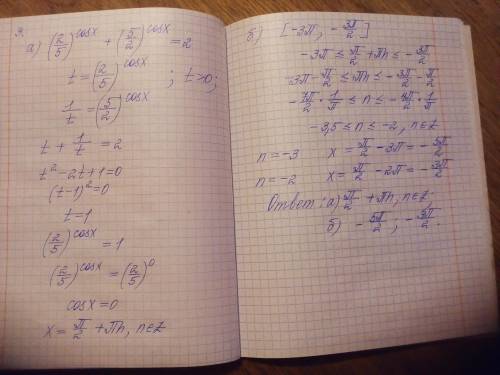 а) (2/5)^cosx + (5/2)^cosx = 2
t = (2/5)^cosx ; t>0;
1/t = (5/2)^cosx
t + 1/t = 2
t² - 2t + 1 = 0
(t-1)² = 0
t = 1
(2/5)^cosx = 1
(2/5)^cosx = (2/5)^0
cosx = 0
x = π/2 + πn, n∈Z
б) [-3π; -3π/2]
-3π ≤ π/2 + πn ≤ -3π/2
-3π - π/2 ≤ πn ≤ -3π/2 - π/2
-7π/2 · 1/π ≤ n ≤ -4π/2 · 1/π
-3,5 ≤ n ≤ -2, n∈Z
n = -3 x = π/2 - 3π = -5π/2
n = -2 x = π/2 - 2π = -3π/2
Ответ: а) π/2 + πn, n∈Z;
б) -5π/2 ; -3π/2.